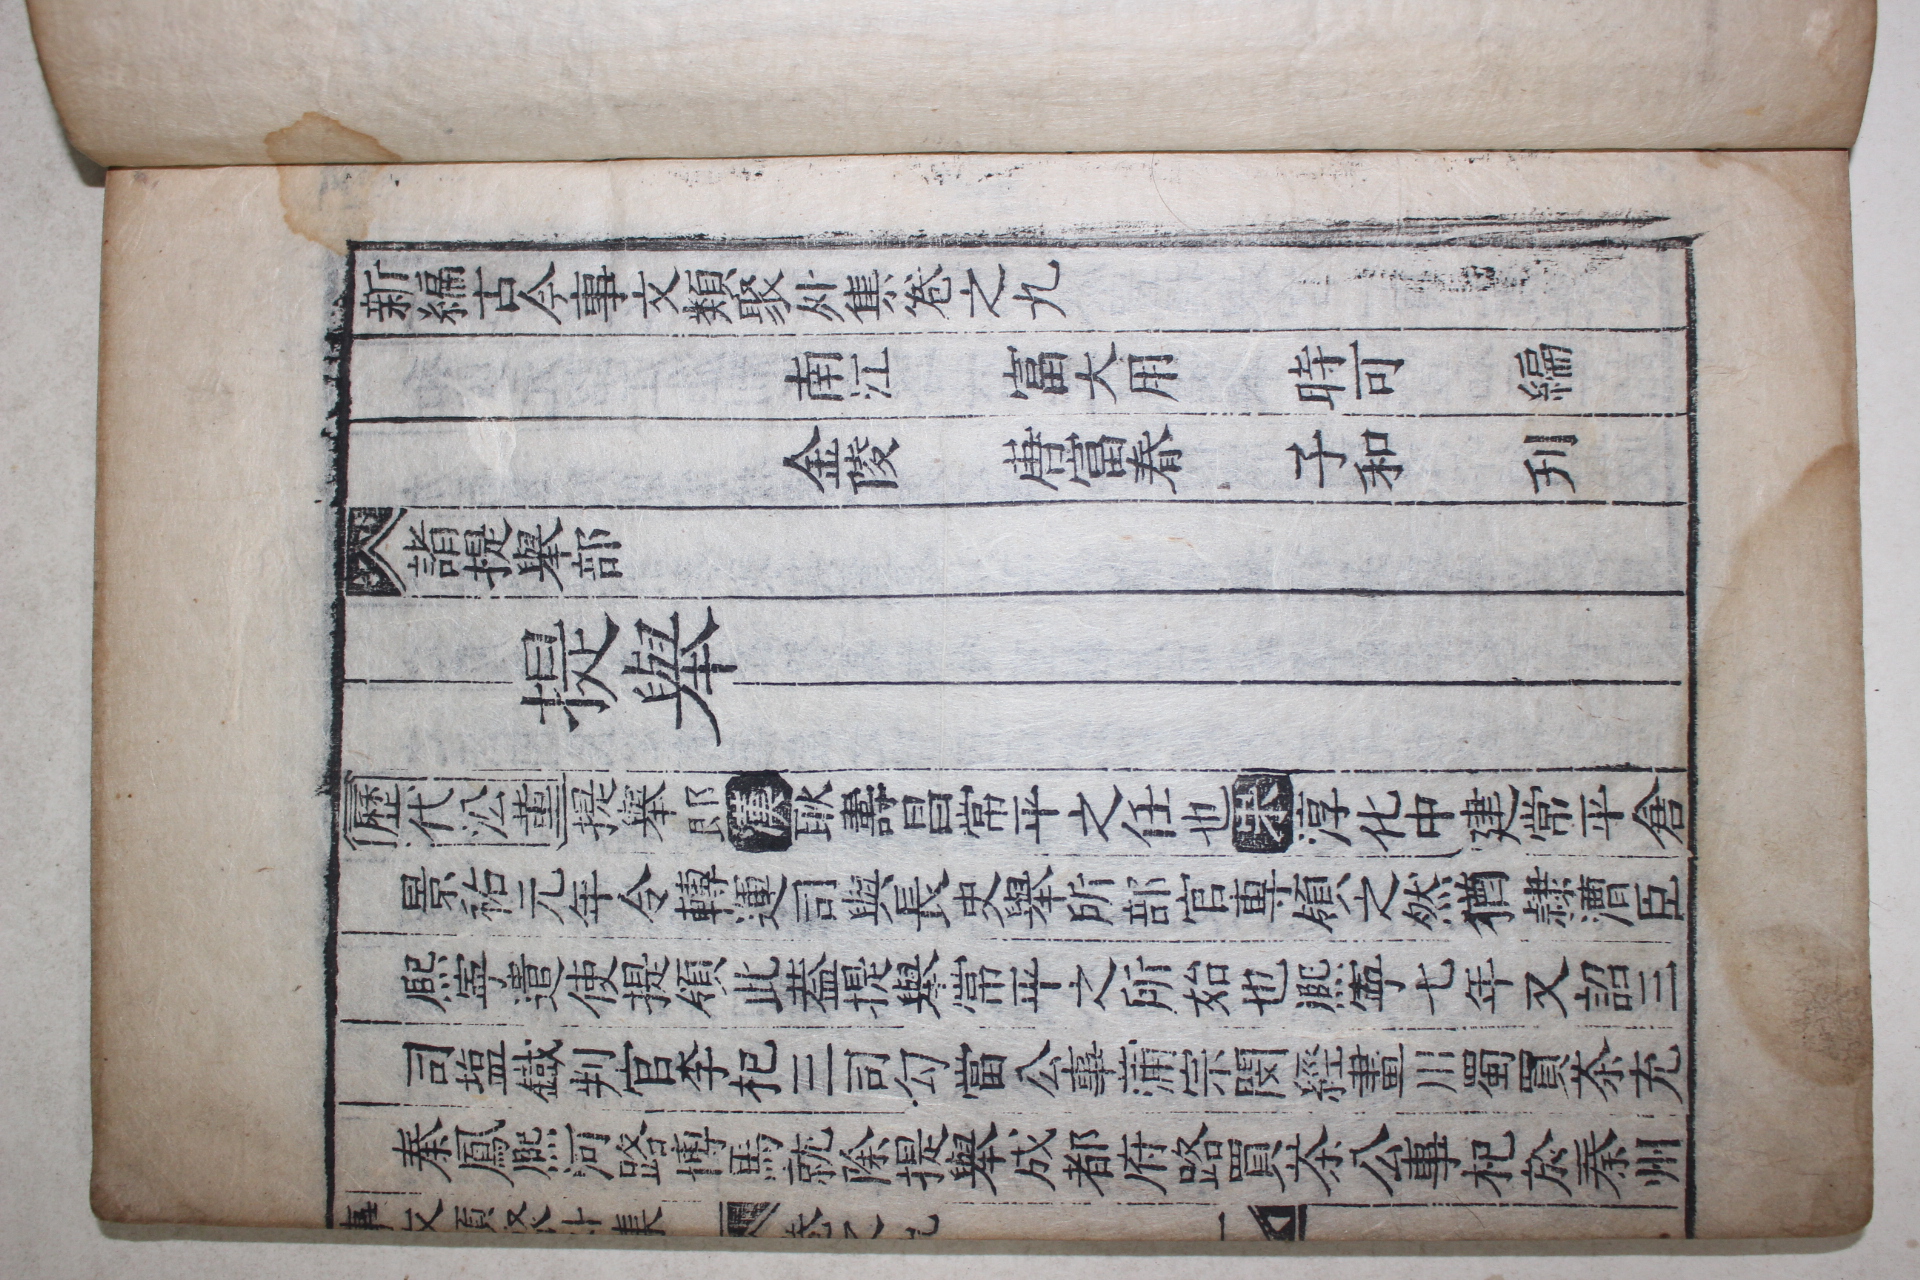 新編古今事文類聚外集卷之九
南江 富大用 時可 編
金陵 唐富春 子和 刋
諸提舉部
提舉
歷代沿革提舉郎漢耿壽昌常平之任也宋淳化中建常平倉
景祐元年令轉運司與長史舉所部官專領之然猶隷漕臣
熙寧遣使提領此葢提舉常平之所始也熙寧七年又詔三
司塩鐵判官李杞三司勾當公事蒲宗閔經畫川蜀買茶充
秦鳳熙河路愽馬就除提舉成都府路買茶公事杞於秦州
事文類聚外集 卷之九 一